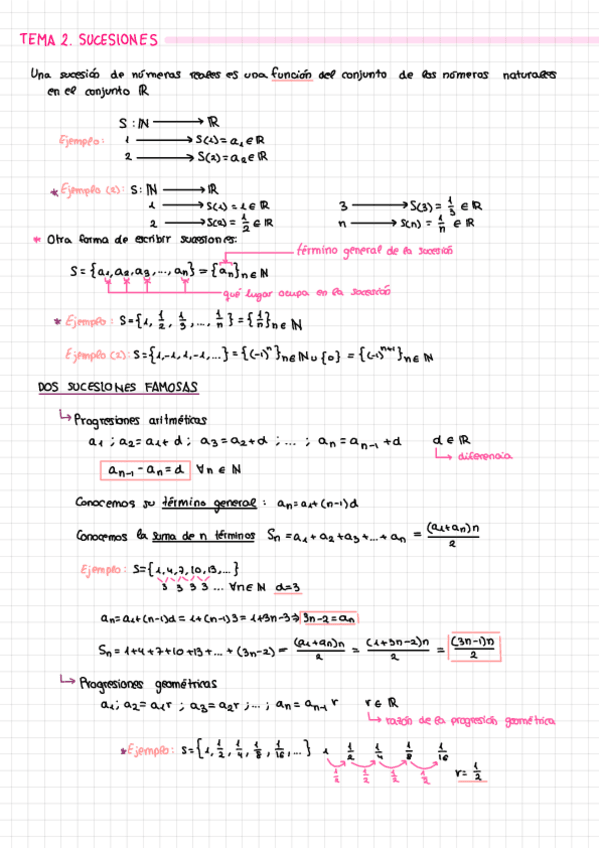 TEMA 2. SUCESIONES
Una sucesión de números reales es una función del conjunto de los números naturales
en el conjunto ℝ
S: ℕ ⟶ ℝ
Ejemplo: 1 ⟶ S(1) = a₁ ∈ ℝ
2 ⟶ S(2) = a₂ ∈ ℝ
* Ejemplo (2): S: ℕ ⟶ ℝ
1 ⟶ S(1) = 1 ∈ ℝ 3 ⟶ S(3) = 1/3 ∈ ℝ
2 ⟶ S(2) = 1/2 ∈ ℝ n ⟶ S(n) = 1/n ∈ ℝ
* Otra forma de escribir sucesiones:
término general de la sucesión
S = {a₁, a₂, a₃, ..., aₙ} = {aₙ}ₙ∈ℕ
qué lugar ocupa en la sucesión
* Ejemplo: S = {1, 1/2, 1/3, ..., 1/n} = {1/n}ₙ∈ℕ
Ejemplo (2): S = {1, -1, 1, -1, ...} = {(-1)ⁿ}ₙ∈ℕ∪{0} = {(-1)ⁿ⁺¹}ₙ∈ℕ
DOS SUCESIONES FAMOSAS
↳ Progresiones aritméticas
a₁ ; a₂ = a₁ + d ; a₃ = a₂ + d ; ... ; aₙ = aₙ₋₁ + d d ∈ ℝ
↳ diferencia
aₙ₋₁ - aₙ = d ∀n ∈ ℕ
Conocemos su término general : aₙ = a₁ + (n-1)d
Conocemos la suma de n términos Sₙ = a₁ + a₂ + a₃ + ... + aₙ = (a₁+aₙ)n/2
Ejemplo: S = {1, 4, 7, 10, 13, ...}
3 3 3 3 ... ∀n∈ℕ d=3
aₙ = a₁ + (n-1)d = 1 + (n-1)3 = 1+3n-3 ⇒ 3n-2 = aₙ
Sₙ = 1+4+7+10+13+ ... + (3n-2) = (a₁+aₙ)n/2 = (1+3n-2)n/2 = (3n-1)n/2
↳ Progresiones geométricas
a₁ ; a₂ = a₁r ; a₃ = a₂r ; ... ; aₙ = aₙ₋₁ r r ∈ ℝ
↳ razón de la progresión geométrica
* Ejemplo: S = {1, 1/2, 1/4, 1/8, 1/16, ...} 1 1/2 1/4 1/8 1/16
1/2 1/2 1/2 1/2 r = 1/2